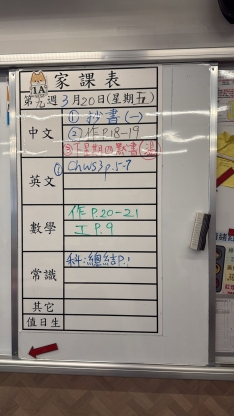 家課表
1A
第九週3月20日(星期五)
中文
① 抄書(一)
② 作P.18-19
③下星期四默書(温)
英文
① ChWS3 p.5-7
數學
作 P.20-21
工 P.9
常識
科:總結P.1
其它
值日生